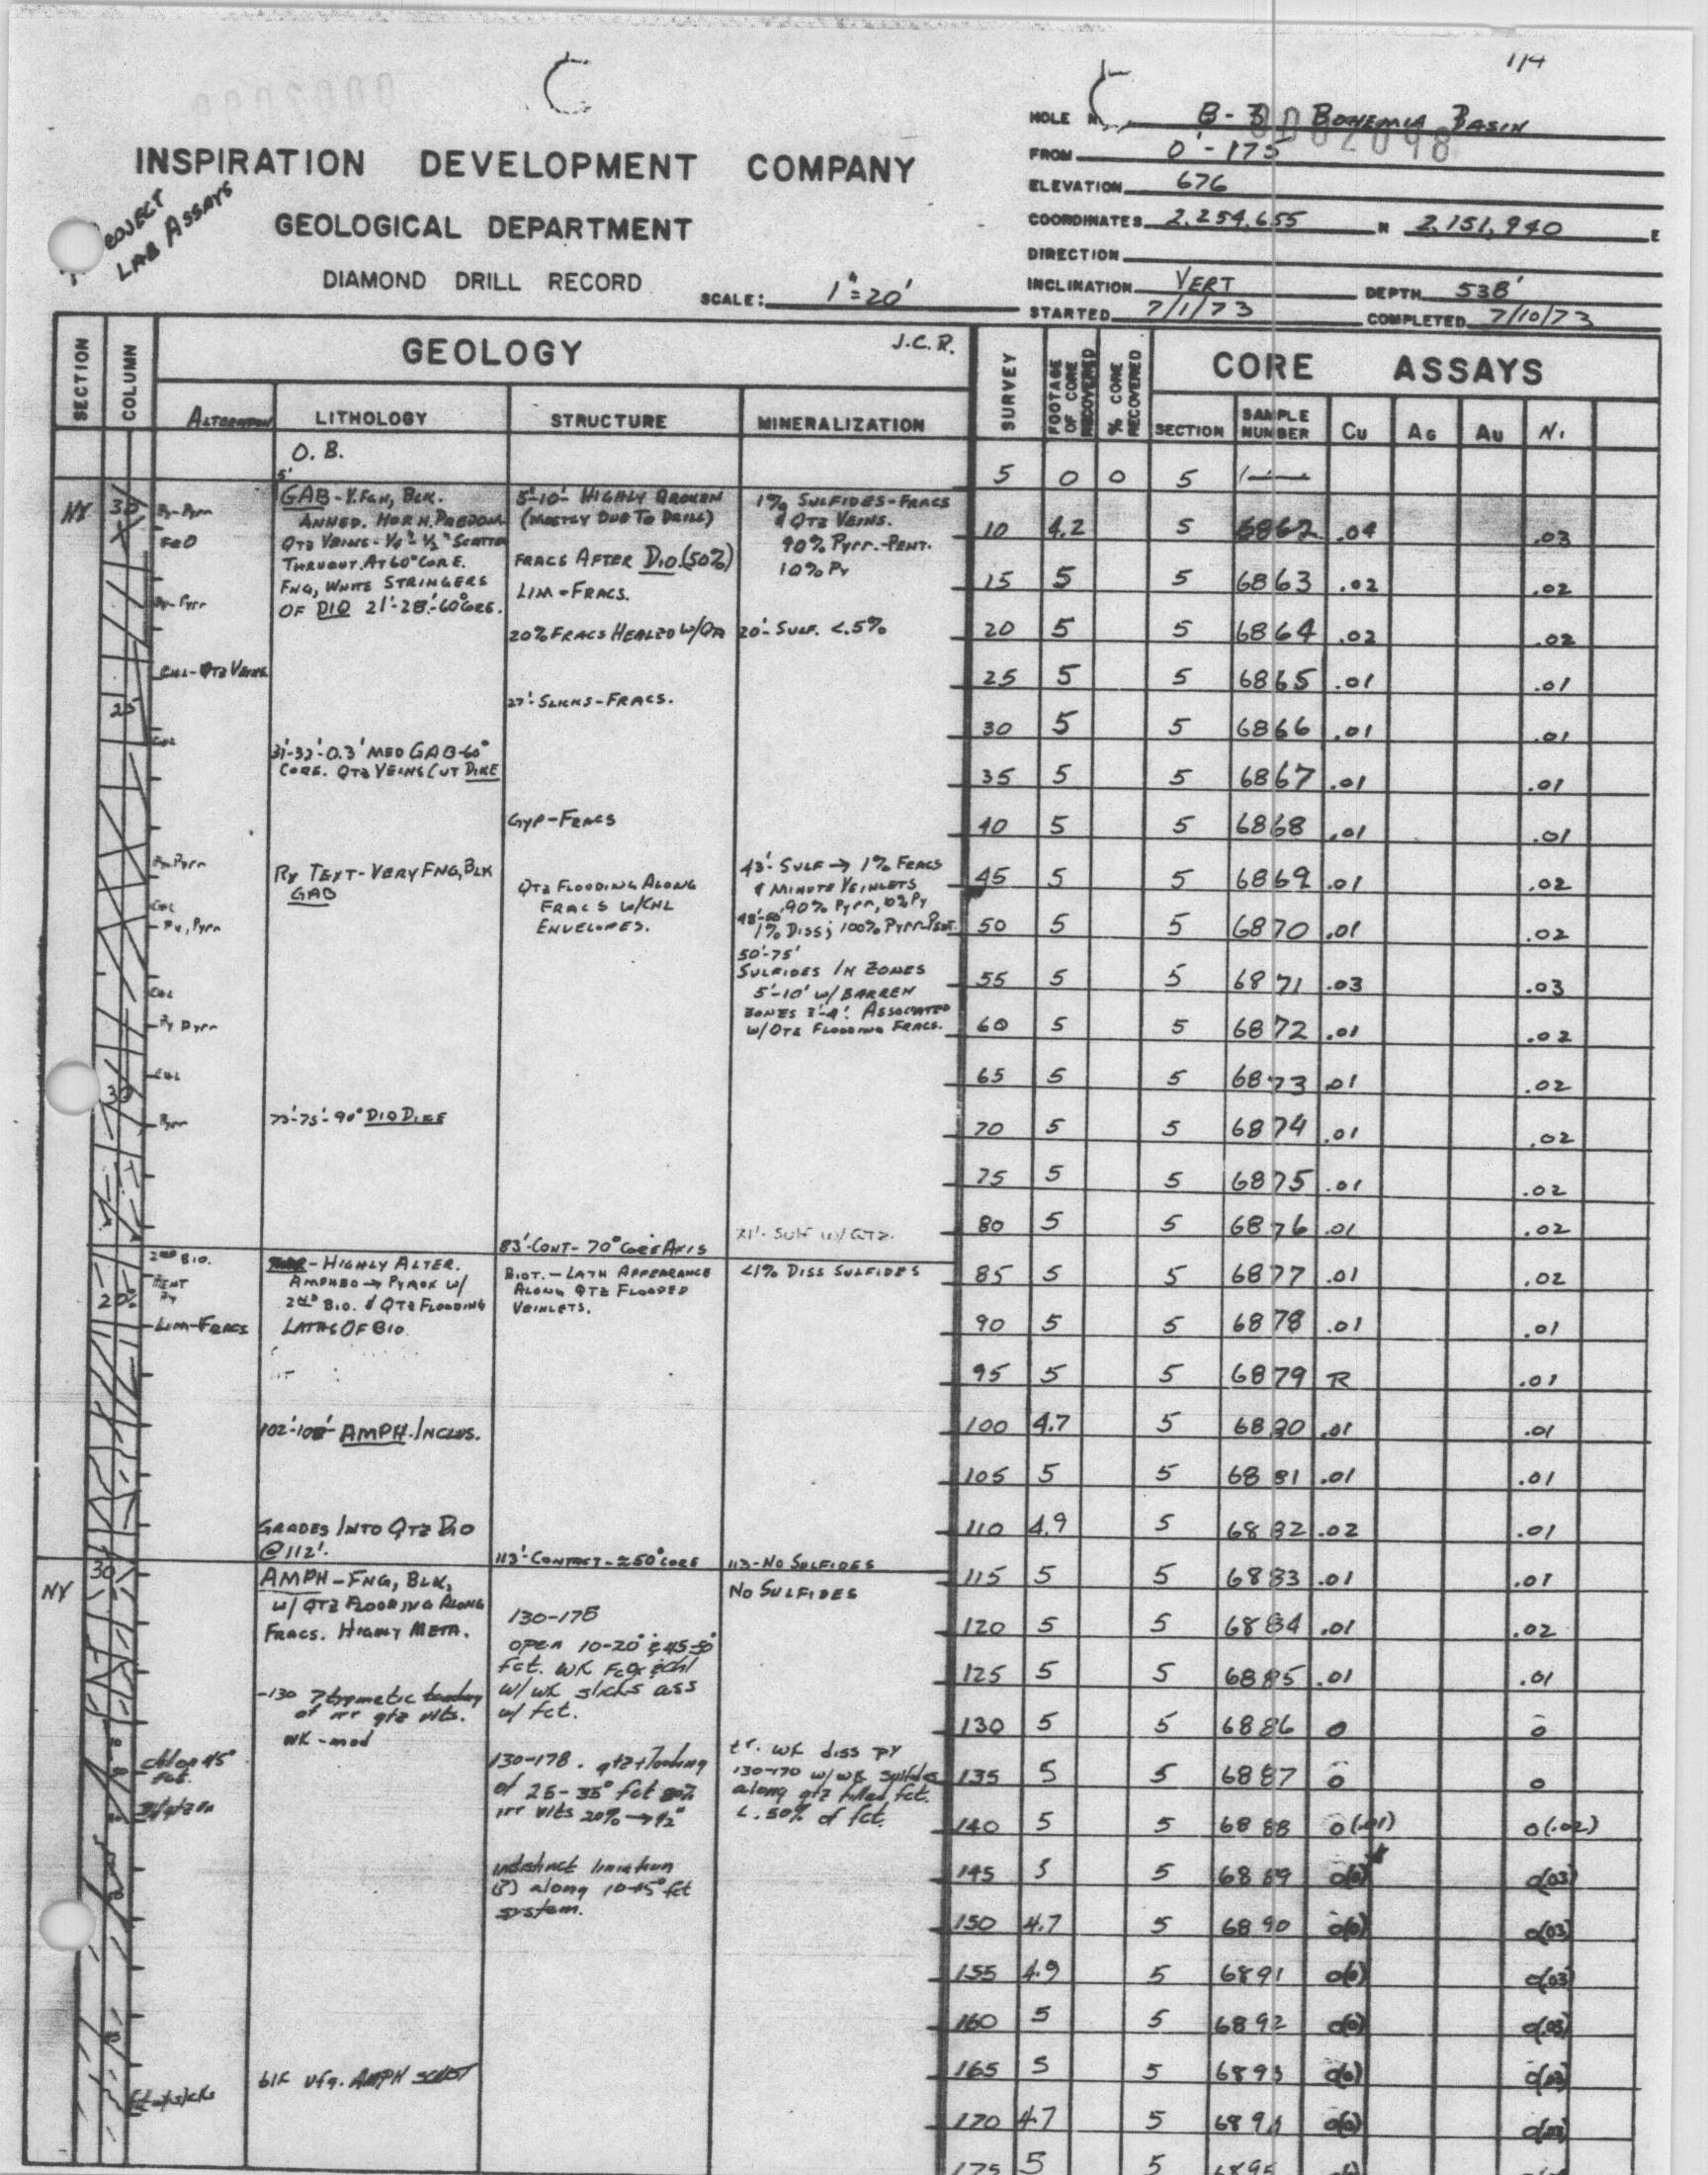 1/4
HOLE N B-3 BOHEMIA BASIN
FROM 0'-175
ELEVATION 676
COORDINATES 2,254,655 N 2,151,940 E
DIRECTION
INCLINATION VERT DEPTH 538'
STARTED 7/1/73 COMPLETED 7/10/73
INSPIRATION DEVELOPMENT COMPANY
GEOLOGICAL DEPARTMENT
DIAMOND DRILL RECORD
SCALE: 1"=20'
LAB ASSAYS
SECTION COLUMN GEOLOGY J.C.R. SURVEY FOOTAGE OF CORE RECOVERED % CORE RECOVERED CORE ASSAYS
ALTERATION LITHOLOGY STRUCTURE MINERALIZATION SECTION SAMPLE NUMBER Cu AG AU Ni
O.B.
5'
GAB-V.FGN, BLK.
QTZ VEINS-
THRUOUT. AT 60° CORE.
FNG, WHITE STRINGERS
OF DIO 21'-28'-60° CORE.
31'-32'-0.3' MED GAB-60°
CORE. QTZ VEINS CUT DIKE
RX TEXT-VERY FNG, BLK
GAB
73'-75'-90° DIO DIKE
-HIGHLY ALTER.
AMPHBO → PYROX W/
2ND BIO. & QTZ FLOODING
LATHS OF BIO.
102'-108'-AMPH. INCLUS.
GRADES INTO QTZ DIO
@ 112'.
AMPH-FNG, BLK,
W/ QTZ FLOODING ALONG
FRACS. HIGHLY META.
-130 Ptygmatic
of irr qtz vlts.
wk-mod
blk vfg. AMPH SCHIST
NY
FeO
CHL-QTZ VEINS
25
CHL
CHL
Py, Pyrr
CHL
Py Pyrr
CHL
30
Pyrr
2ND BIO.
PENT
Py
20%
LIM-FRACS
30
NY
chl on 45°
fct.
5'-10'- HIGHLY BROKEN
(MOSTLY DUE TO DRILL)
FRACS AFTER DIO.(50%)
LIM-FRACS.
20% FRACS HEALED W/QTZ
27'-SLICKS-FRACS.
GYP-FRACS
QTZ FLOODING ALONG
FRACS W/CHL
ENVELOPES.
83'-CONT-70° CORE AXIS
BIOT.-LATH APPEARANCE
ALONG QTZ FLOODED
VEINLETS.
113'-CONTACT-≈50° CORE
130-178
open 10-20° & 45-50°
fct. wk
w/ wk slicks ass
w/ fct.
130-178. qtz flooding
of 25-35° fct 80%
irr vlts 20% → 1/2"
indistinct liniation
(?) along 10-15° fct
system.
1% SULFIDES-FRACS
& QTZ VEINS.
90% PYRR.-PENT.
10% PY
20'-SULF. <.5%
43'-SULF → 1% FRACS
& MINUTE VEINLETS
90% Pyrr, 10% Py
48'-50'
1% DISS; 100% PYRR-PENT.
50'-75'
SULFIDES IN ZONES
5'-10' W/ BARREN
ZONES 3'-4'. ASSOCIATED
W/QTZ FLOODING FRACS.
SULF W/QTZ.
<1% DISS SULFIDES
113-NO SULFIDES
NO SULFIDES
tr. wk diss py
130-170 w/wk sulfides
along qtz filled fct.
<.50% of fct.
5 0 0 5
10 4.2 5 6862 .04 .03
15 5 5 6863 .02 .02
20 5 5 6864 .02 .02
25 5 5 6865 .01 .01
30 5 5 6866 .01 .01
35 5 5 6867 .01 .01
40 5 5 6868 .01 .01
45 5 5 6869 .01 .02
50 5 5 6870 .01 .02
55 5 5 6871 .03 .03
60 5 5 6872 .01 .02
65 5 5 6873 .01 .02
70 5 5 6874 .01 .02
75 5 5 6875 .01 .02
80 5 5 6876 .01 .02
85 5 5 6877 .01 .02
90 5 5 6878 .01 .01
95 5 5 6879 TR .01
100 4.7 5 6880 .01 .01
105 5 5 6881 .01 .01
110 4.9 5 6882 .02 .01
115 5 5 6883 .01 .01
120 5 5 6884 .01 .02
125 5 5 6885 .01 .01
130 5 5 6886 0 0
135 5 5 6887 0 0
140 5 5 6888 0(.01) 0(.02)
145 5 5 6889 0(0) 0(.03)
150 4.7 5 6890 0(0) 0(.03)
155 4.9 5 6891 0(0) 0(.03)
160 5 5 6892 0(0) 0(.03)
165 5 5 6893 0(0) 0(.03)
170 4.7 5 6894 0(0) 0(.03)
175 5 5 6895